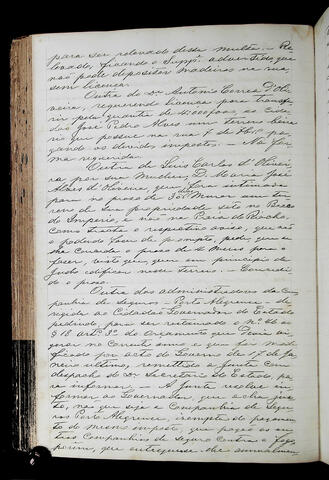 para ser relevado dessa multa. — Re-
levado, ficando o Suppe. advertido que
não póde depositar madeiras na rua,
sem licença.
Outra do Dr. Antonio Correa d'Oli-
veira, requerendo licença para transfe-
rir pela quantia de cida-
dão José Pedro Alves um terreno
que possue na rua 7 de pa-
gando os devidos impostos. — Na for-
ma requerida.
Outra de Luis Carlos d'Olivei-
ra por sua mulher, D. Maria José
Alves d'Oliveira, que fora intimado
para no praso de 30 dias murar um ter-
reno de sua propriedade sito no Becco
do Imperio, e não na Praia do Riacho,
como tracta o respectivo aviso, que não
o podendo fazer de prompto, pede, que se
lhe conceda o praso de 2 meses para o
fazer, visto que, quer em principio de
Junho edificar nesse terreno. — Concedi-
do o praso.
Outra dos administradores da Com-
panhia de Seguros — Porto Alegrense — di-
rigida ao Cidadão Governador do Estado
pedindo, para ser retirado o nº 26 do
§ 18 artº 1º do Orçamento que deve vi-
gorar no corrente anno e que foi modi-
ficado por acto do Governo de 17 de Ja-
neiro ultimo, remettido á Junta com
despacho do Secretario do Estado, pa-
ra informar. — A Junta resolve in-
formar ao Governador, que acha jus-
to, não que seja a Companhia de Segu-
ros Porto Alegrense exempta do pagamen-
to do mesmo imposto, que pagão as ou-
tras Companhias de Seguro contra o fogo,
porém, que entregasse annualmen-